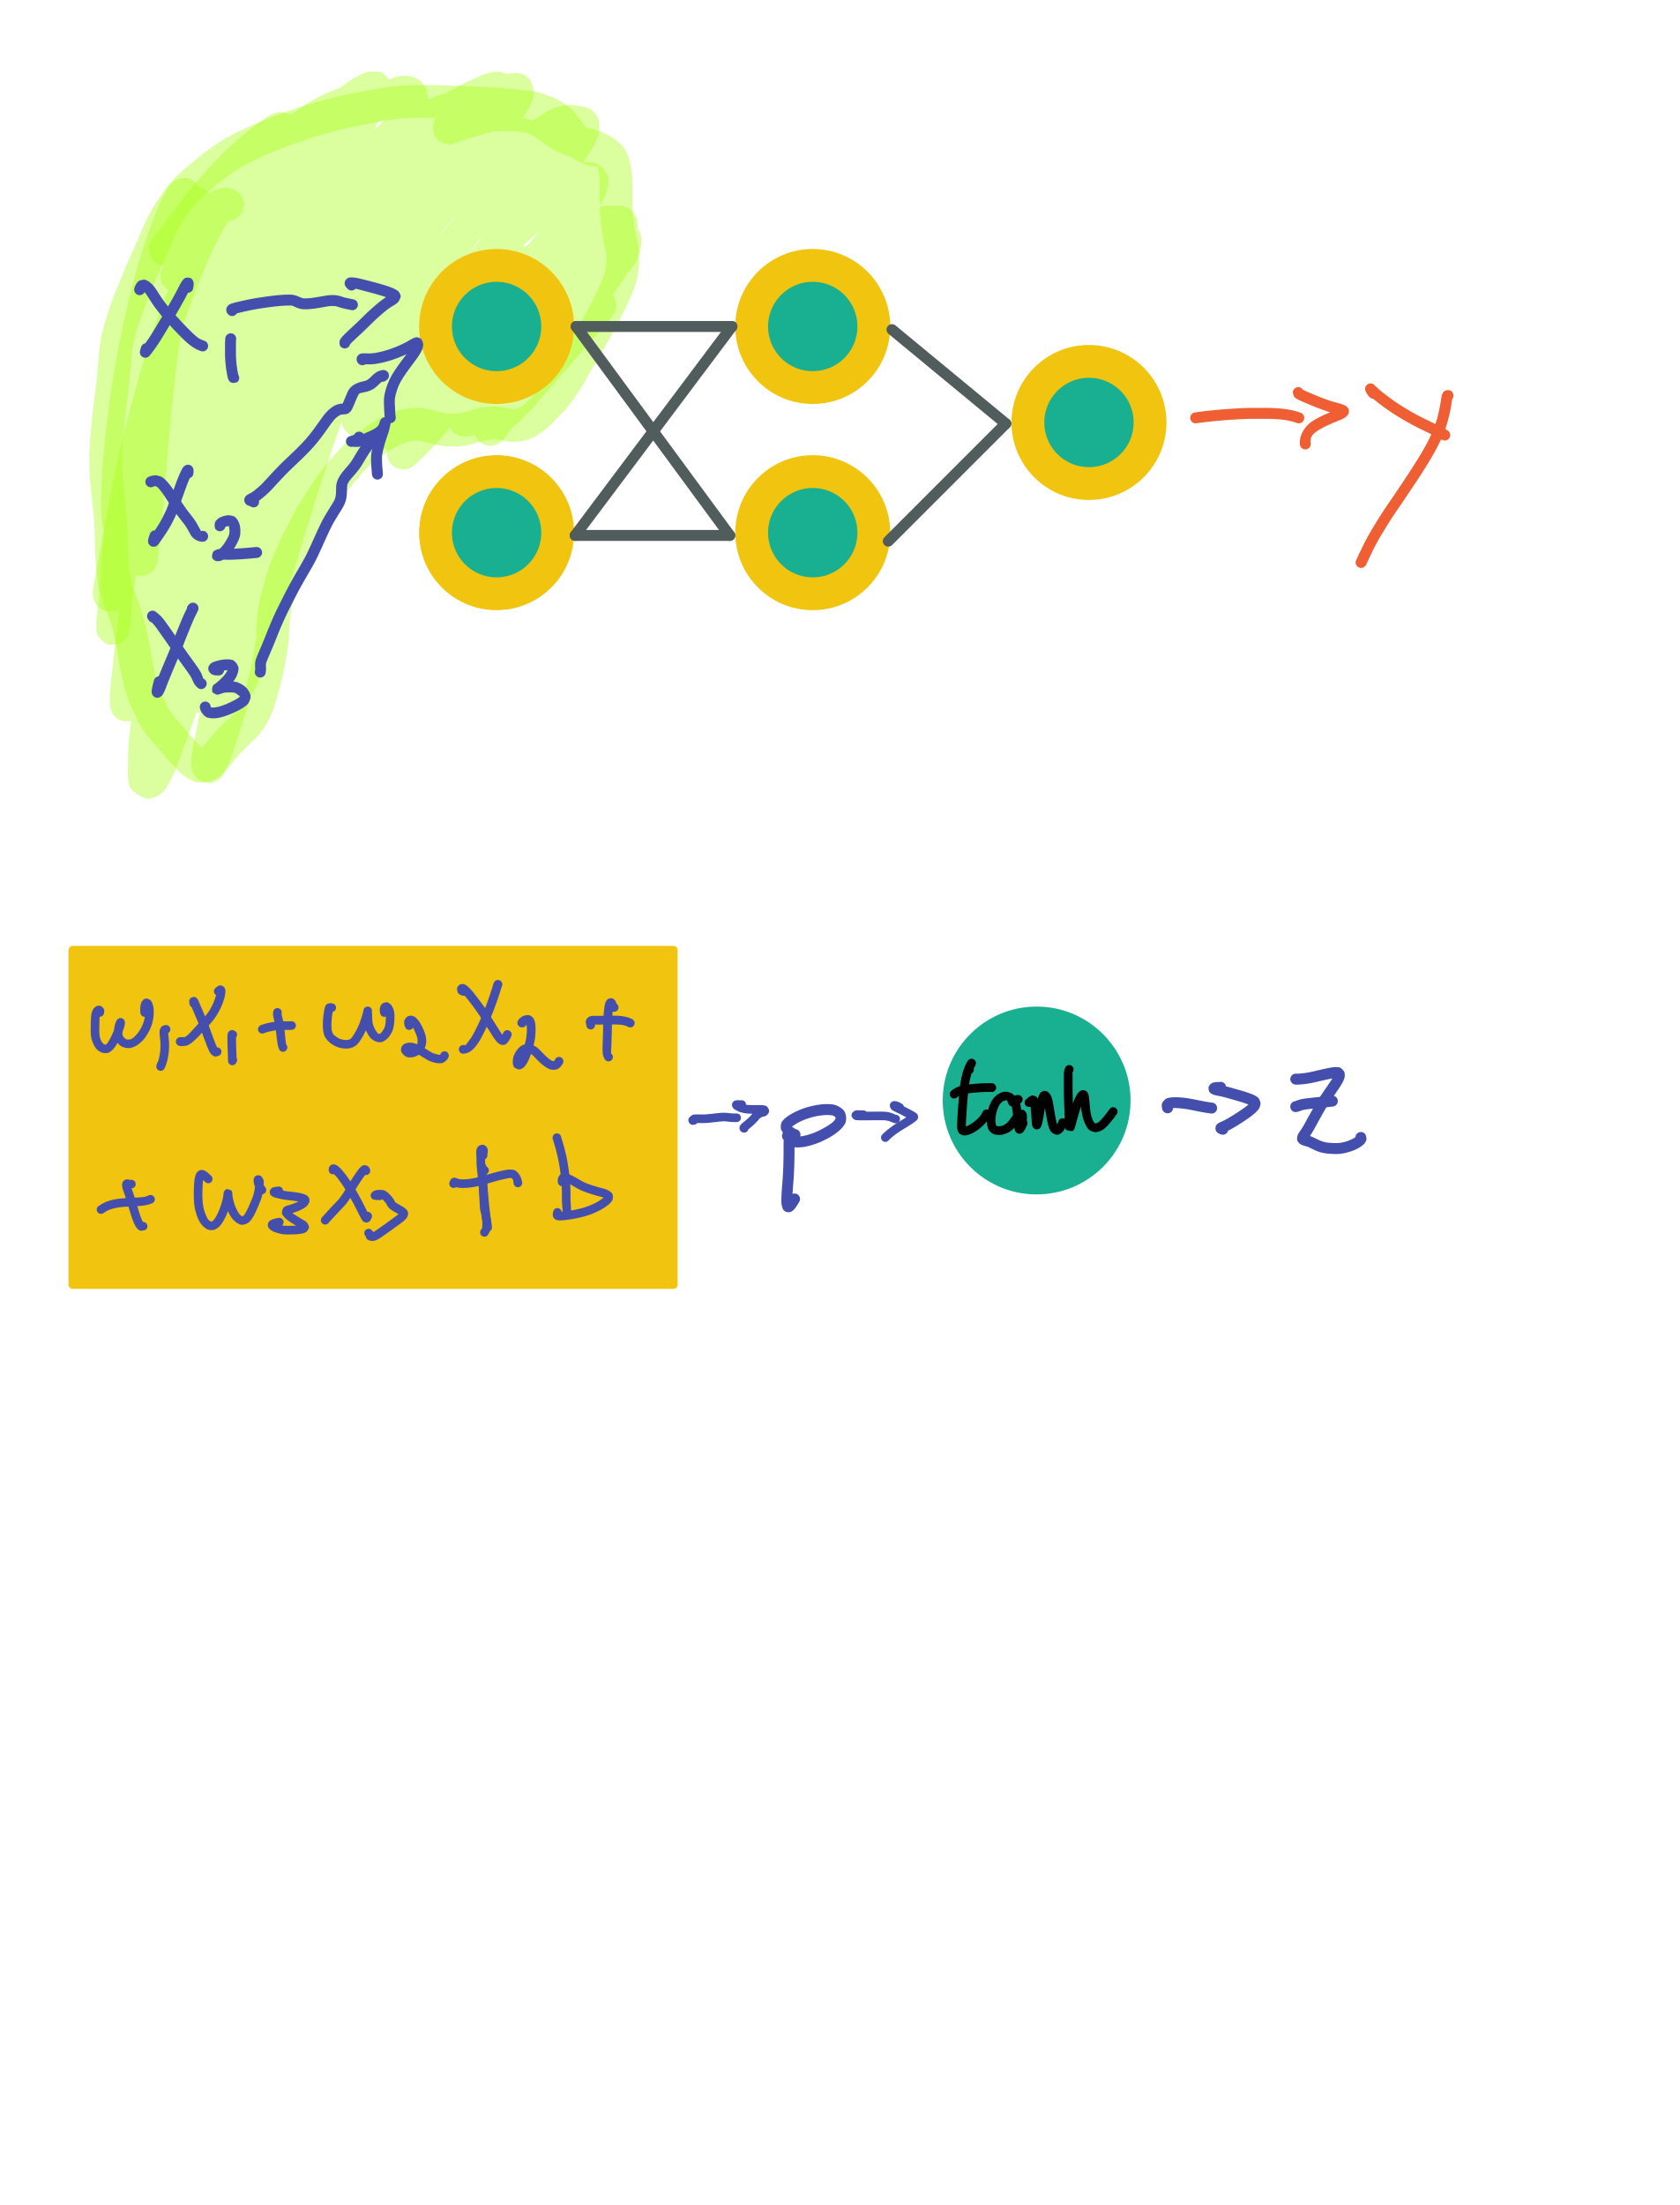 x₁
x₂
x₃
y
w₁x₁ + w₂x₂ +
+ w₃x₃ + b
→ p → tanh → z